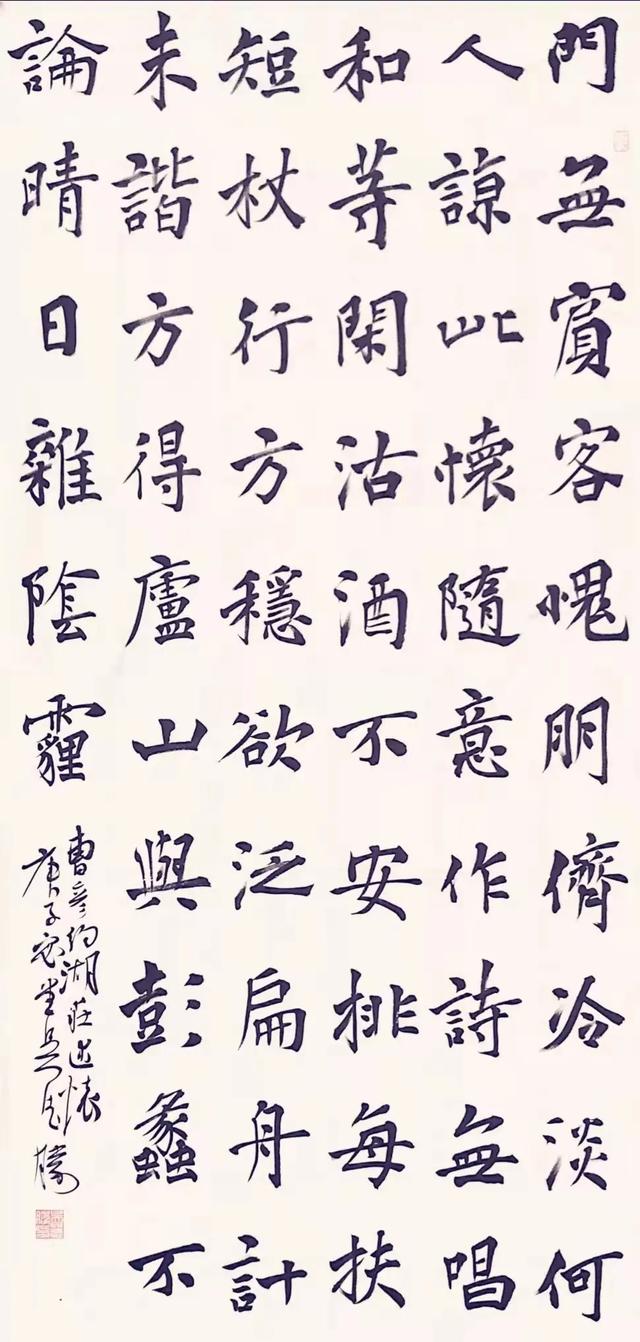 門無賓客愧朋儕冷淡何
人諒此懷隨意作詩無唱
和等閑沽酒不安排每扶
短杖行方穩欲泛扁舟計
未諧方得廬山與彭蠡不
論晴日雜陰霾
曹彥約湖莊述懷
庚子